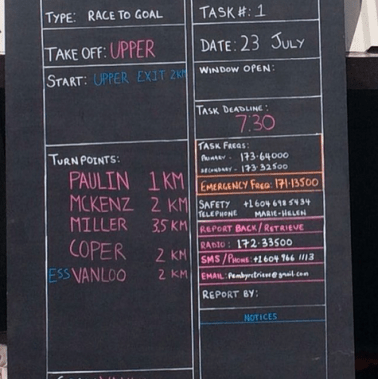 TYPE: RACE TO GOAL
TAKE OFF: UPPER
START: UPPER EXIT 2KM
TURNPOINTS:
PAULIN 1 KM
MCKENZ 2 KM
MILLER 35 KM
COPER 2 KM
ESS VANLOO 2 KM
TASK #: 1
DATE: 23 JULY
WINDOW OPEN:
TASK DEADLINE:
7:30
TASK FREQS:
PRIMARY - 173.64000
SECONDARY - 173.32500
EMERGENCY FREQ: 171.13500
SAFETY +1 604 698 5434
TELEPHONE MARIE-HELEN
REPORT BACK/RETRIEVE
RADIO: 172.33500
SMS/PHONE: +1 604 966 1113
EMAIL: @gmail.com
REPORT BY:
NOTICES